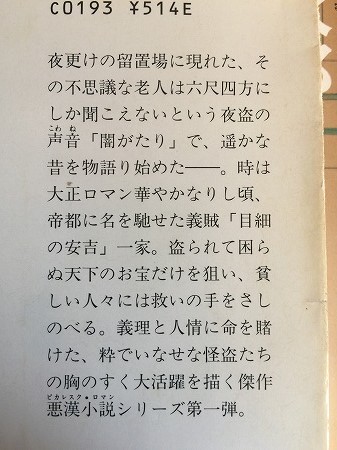 C0193 ¥514E
夜更けの留置場に現れた、そ
の不思議な老人は六尺四方に
しか聞こえないという夜盗の
声音「闇がたり」で、遥かな
昔を物語り始めた――。時は
大正ロマン華やかなりし頃、
帝都に名を馳せた義賊「目細
の安吉」一家。盗られて困ら
ぬ天下のお宝だけを狙い、貧
しい人々には救いの手をさし
のべる。義理と人情に命を賭
けた、粋でいなせな怪盗たち
の胸のすく大活躍を描く傑作
悪漢小説シリーズ第一弾。